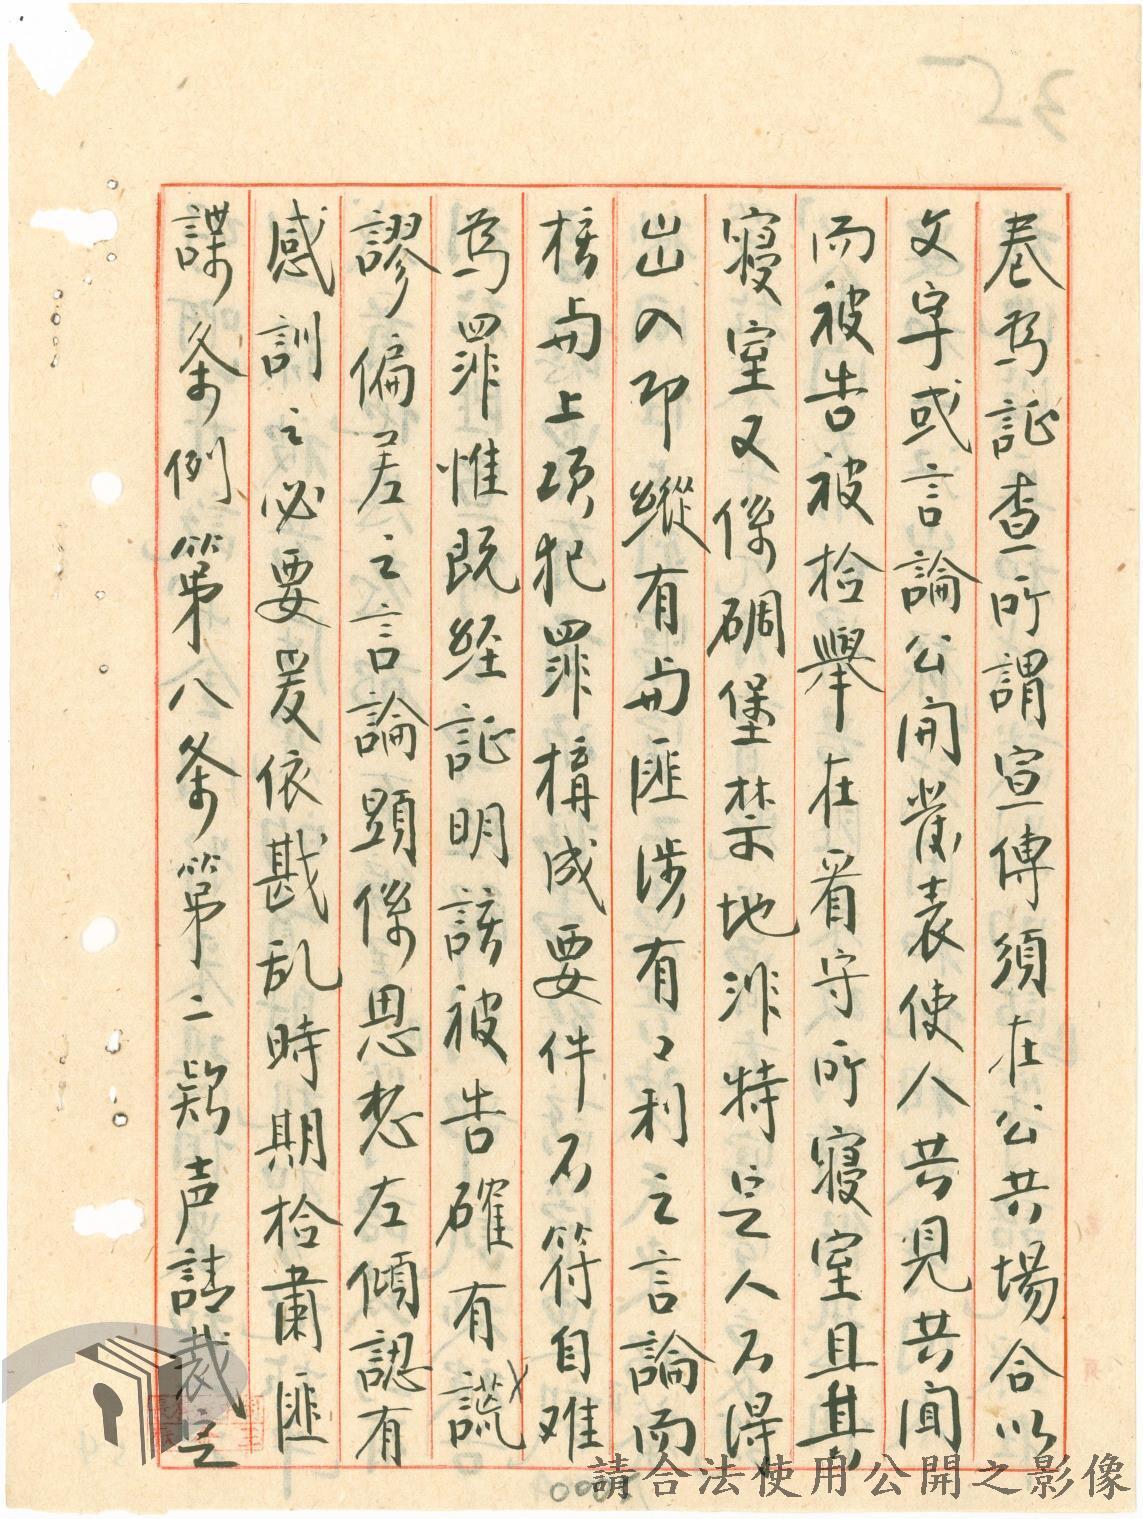 卷為証查所謂宣傳須在公共場合以
文字或言論公開發表使人共見共聞
而被告被检舉在看守所寢室且其
寢室又係碉堡禁地非特定人不得
出入即縱有与匪涉有々利之言論而
核与上项犯罪構成要件不符自难
為罪惟既经証明該被告確有謊
謬偏差之言論顕係思想左傾認有
感訓之必要爰依戡乱時期检肅匪
諜条例第八条第二款声請裁定
請合法使用公開之影像